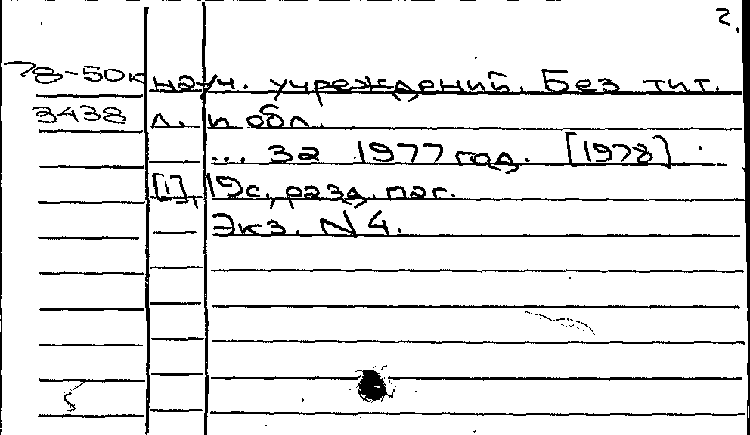 2.
78-50к науч. учреждений. Без тит.
3438 л. и обл.
... за 1977 год. [1978].
[1], 19с., разд. паг.
Экз. N 4.